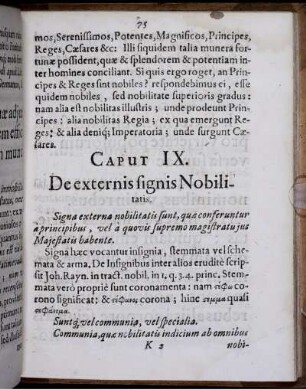 75
mos, Serenissimos, Potentes, Magnificos, Principes,
Reges, Cæsares &c: Illi siquidem talia munera for-
tunæ possident, quæ & splendorem & potentiam in-
ter homines conciliant. Si quis ergo roget, an Prin-
cipes & Reges sint nobiles? respondebimus ei, esse
quidem nobiles, sed nobilitate superioris gradus:
nam alia est nobilitas illustris; unde prodeunt Prin-
cipes: alia nobilitas Regia; ex qua emergunt Re-
ges: & alia deniq; Imperatoria; unde surgunt Cæ-
sares.
CAPUT IX.
De externis signis Nobili-
tatis.
Signa externa nobilitatis sunt, quæ conferuntur
à principibus, vel à quovis supremo magistratu jus
Majestatis habente.
Signa hæc vocantur insignia, stemmata vel sche-
mata & arma, De Insignibus inter alios eruditè scrip-
sit Joh. Rayn. in tract. nobil. in 1. q. 3. 4. princ. Stem-
mata verò propriè sunt coronamenta: nam στέφω co-
rono significat: & στέφανος corona; hinc στέμμα quasi
Suntq; vel communia, vel specialia.
Communia, quæ nobilitatis indicium ab omnibus
K 2 nobi-